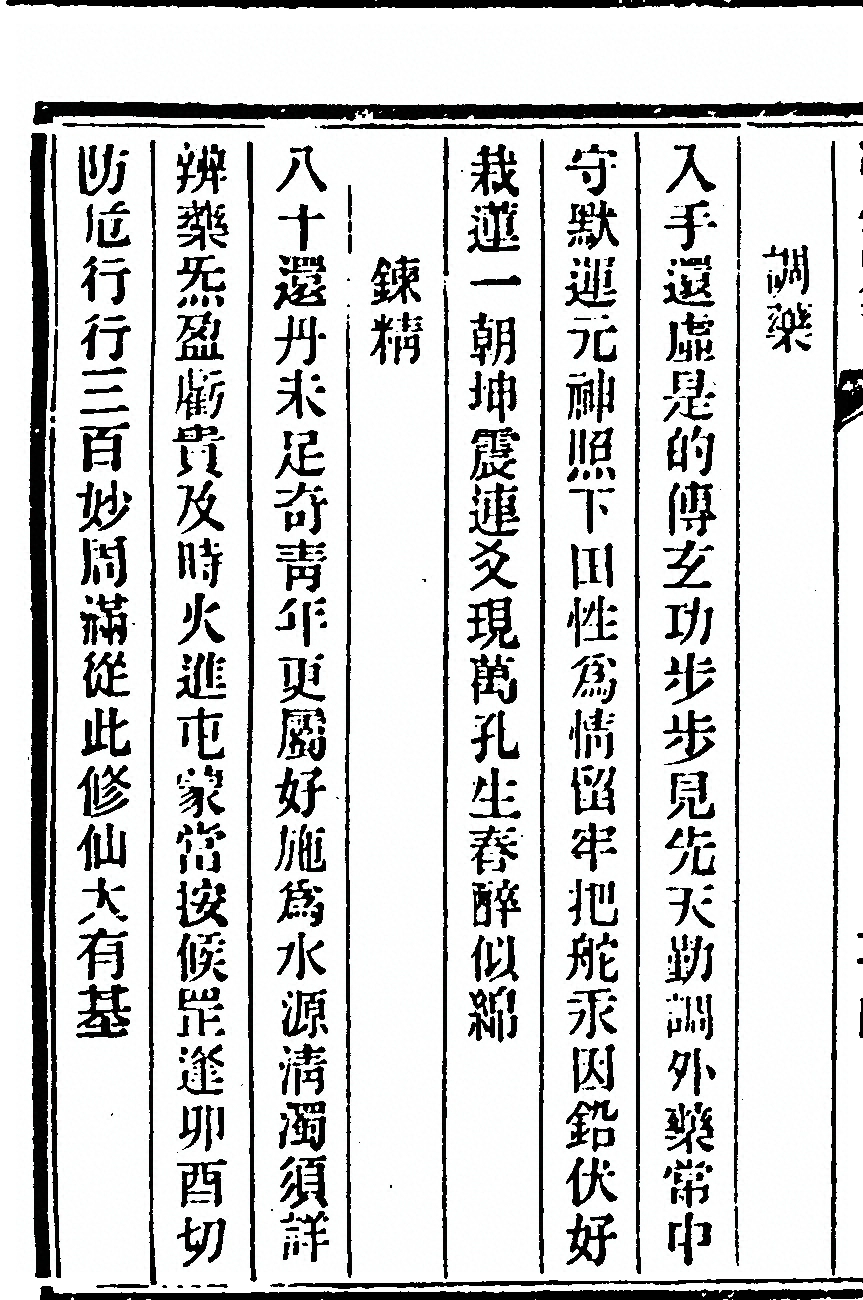 調藥
入手還虛是的傳玄功步步見先天勤調外藥常中
守默運元神照下田性爲情留牢把舵汞因鉛伏好
栽蓮一朝坤震連爻現萬孔生春醉似綿
鍊精
八十還丹未足奇靑年更屬好施爲水源淸濁須詳
辨藥炁盈虧貴及時火進屯蒙當按候罡逢卯酉切
防危行行三百妙周滿從此修仙大有基